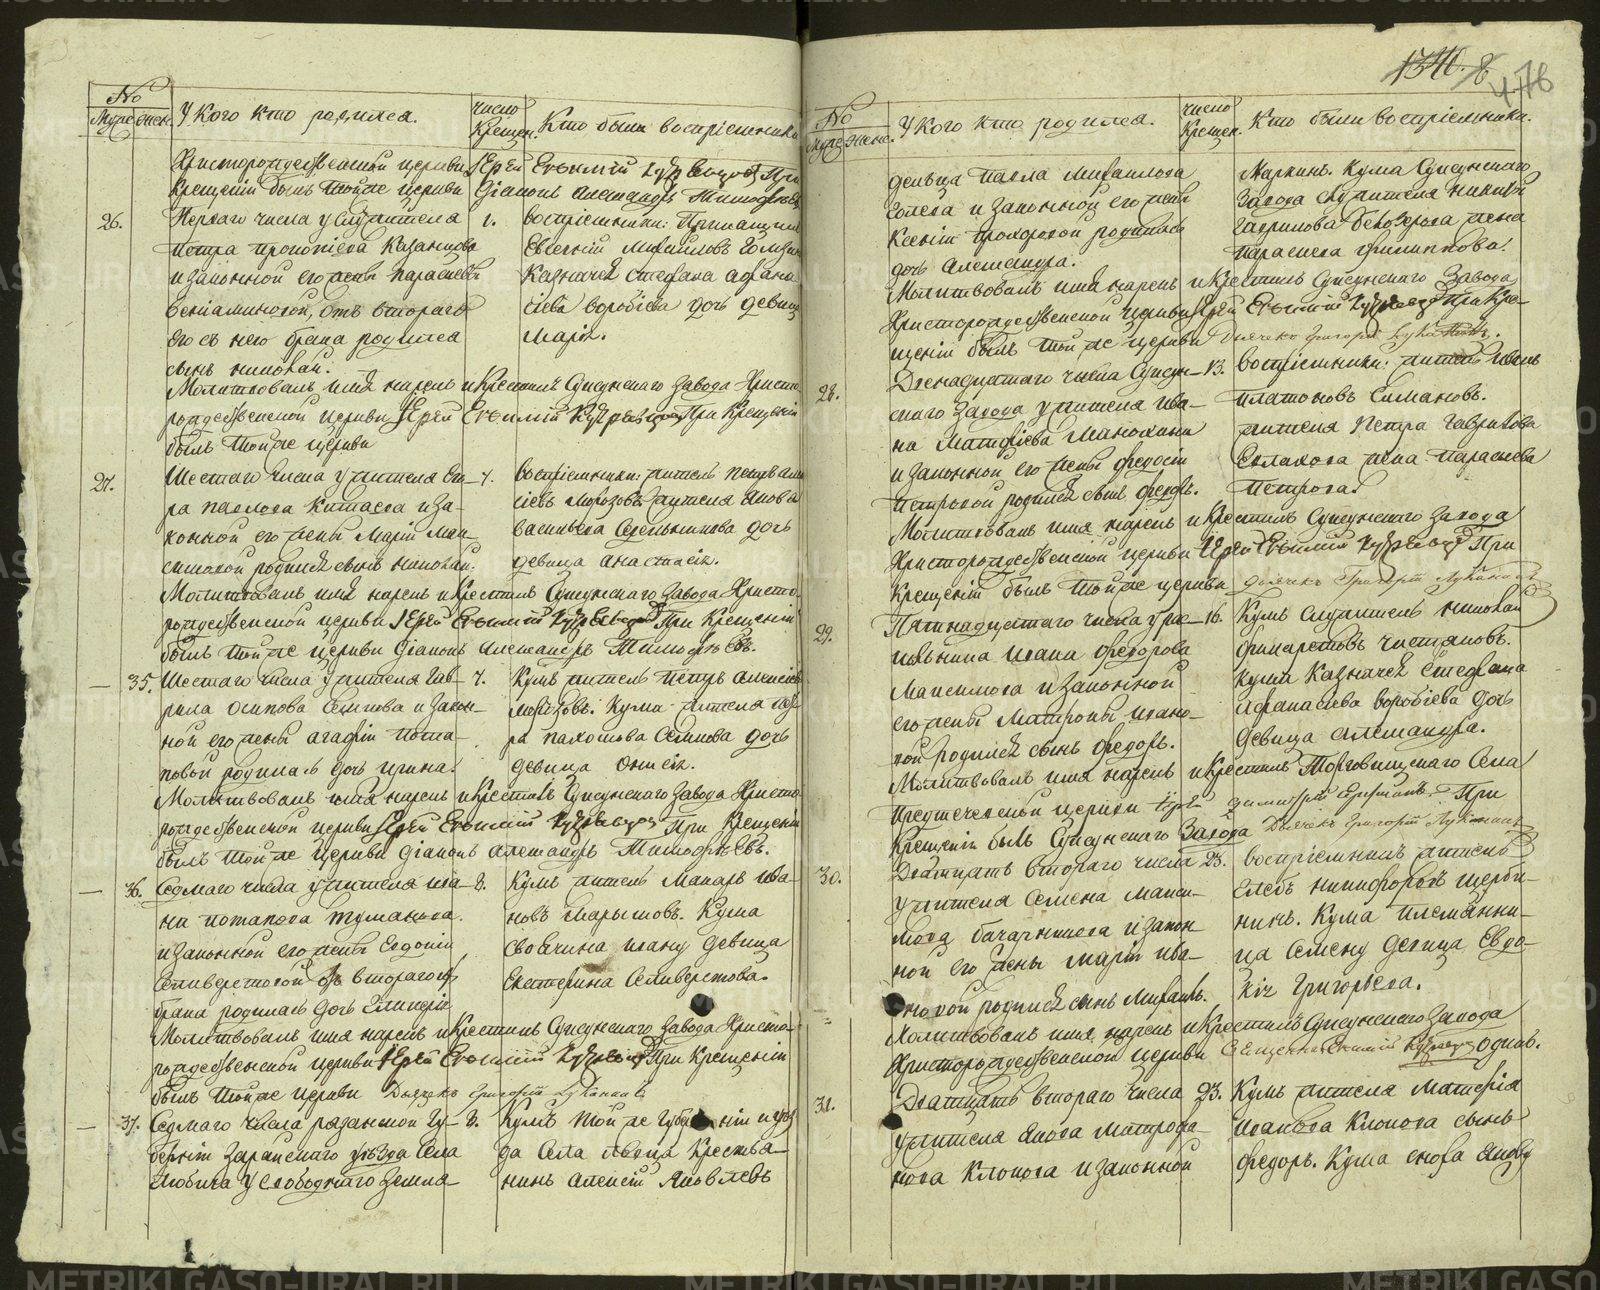 №
Муже Женс.
У Кого кто родился.
число Крещен.
Кто были воспріемники
Христорождественской церкви Іерей Евфимій При
Крещеніи былъ той же церкви Діаконъ Александръ Тимофеевъ
26.
Перваго числа у служителя
Петра Прокопіева Казанцова
и законной его жены Параскевы
Веніаминовой, отъ втораго
его съ нею брака родился
сынъ Николай.
1.
воспріемники: Прикащикъ
Евгеній Михайловъ
Казначея Стефана Афана
сіева Воробіева дочь девица
Марія.
Молитвовалъ имя нарекъ и Крестилъ Суксунскаго завода Христо
рождественской церкви Іерей Евфимій При Крещеніи
былъ той же церкви
27.
Шестаго числа у жителя
ра Павлова Китаева и за
конной его жены Маріи Мак
симовой родился сынъ Николай.
7.
воспріемники: житель Петръ Алек
сіевъ Морозовъ жителя Якова
Васильева Сесюнникова дочь
девица Анастасія.
Молитвовалъ имя нарекъ и Крестилъ Суксунскаго завода Христо
рождественской церкви Іерей Евфимій При Крещеніи
былъ той же церкви Діаконъ Александръ Тимофеевъ.
35.
Шестаго числа у жителя Гав
рила Осипова и закон
ной его жены Агафіи Пота
повой родилась дочь Ирина.
7.
Кумъ житель Петръ Алексіевъ
Морозовъ. Кума жителя
ра Пахомова Семкова дочь
девица Онисія.
Молитвовалъ имя нарекъ и Крестилъ Суксунскаго завода Христо
рождественской церкви Іерей Евфимій При Крещеніи
былъ той же церкви Діаконъ Александръ Тимофеевъ.
36.
Седмаго числа у жителя Ива
на Потапова Туманова
и законной его жены Евдокіи
Селиверстовой отъ втораго
брака родилась дочь Гликерія
8.
Кумъ житель Макаръ Ива
новъ Марышовъ. Кума
своячина Ивану девица
Екатерина Селиверстова.
Молитвовалъ имя нарекъ и Крестилъ Суксунскаго завода Христо
рождественской церкви Іерей Евфимій При Крещеніи
былъ той же церкви Дьячекъ Григорій Луканинъ
37.
Седмаго числа Рязанской Гу
берніи Зарайскаго уѣзда Села
Любича у свободнаго земле
8.
Кумъ той же губерніи и уѣз
да Села Кресть
нинъ Алексій Яковлевъ
1341. 8
476
№
Муже Женс.
У Кого кто родился.
число Крещен.
Кто были воспріемники.
дельца Павла Михаилова
и законной его жены
Ксеніи Прохоровой родилась
дочь Александра.
Маркинъ. Кума Суксунскаго
завода служителя Никиты
Гаврилова Белозерова жена
Параскева Филиппова.
Молитвовалъ имя нарекъ и Крестилъ Суксунскаго завода
Христорождественской церкви Іерей Евфимій При Кре
щеніи былъ той же церкви Дьячекъ Григорій Луканинъ.
28.
Двенадцатаго числа Суксун
скаго завода у жителя Ива
на Матфіева Манохина
и законной его жены Федосіи
Петровой родился сынъ Федоръ.
13.
воспріемники: житель Иванъ
Платоновъ Симановъ.
жителя Петра Гаврилова
жена Параскева
Петрова.
Молитвовалъ имя нарекъ и Крестилъ Суксунскаго завода
Христорождественской церкви Іерей Евфимій При
Крещеніи былъ той же церкви дьячекъ Григорій Луканинъ
29.
Пятнадцатаго числа у рас
кольника Ивана Федорова
Максимова и законной
его жены Матроны Ивано
вой родился сынъ Федоръ.
16.
Кумъ служитель Николай
Филаретовъ Чистяковъ.
кума Казначея Стефана
Афанасіева Воробіева дочь
девица Александра.
Молитвовалъ имя нарекъ и Крестилъ Торговицкаго Села
Предтечевской церкви Іерей Димитрій При
Крещеніи былъ Суксунскаго Завода Дьячекъ Григорій Луканинъ
30.
Дватцать втораго числа
у жителя Семена Макси
мова и закон
ной его жены Маріи Ива
новой родился сынъ Михаилъ.
23.
воспріемникъ житель
Глебъ Никифоровъ Щерби
нинъ. Кума племянни
ца Семену девица Евдо
кія Григорьева.
Молитвовалъ имя нарекъ и Крестилъ Суксунскаго завода
Христорождественской церкви Священникъ Евфимій одинъ.
31.
Дватцать втораго числа
у жителя Якова Митрофа
нова Клопова и законной
23.
Кумъ жителя Матфія
Иванова Клопова сынъ
Федоръ. Кума сноха Якову